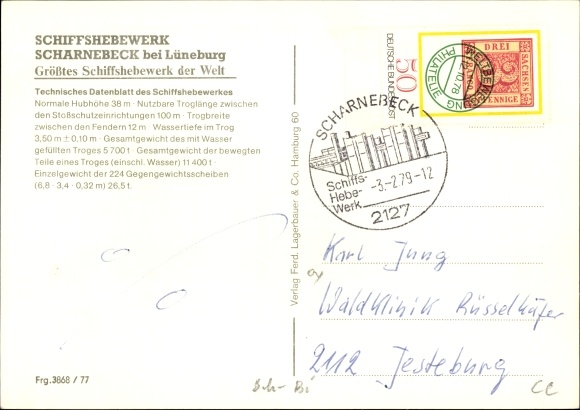 SCHIFFSHEBEWERK
SCHARNEBECK bei Lüneburg
Größtes Schiffshebewerk der Welt
Technisches Datenblatt des Schiffshebewerkes
Normale Hubhöhe 38 m · Nutzbare Troglänge zwischen
den Stoßschutzeinrichtungen 100 m · Trogbreite
zwischen den Fendern 12 m · Wassertiefe im Trog
3,50 m ± 0,10 m · Gesamtgewicht des mit Wasser
gefüllten Troges 5700 t · Gesamtgewicht der bewegten
Teile eines Troges (einschl. Wasser) 11400 t ·
Einzelgewicht der 224 Gegengewichtsscheiben
(6,8 · 3,4 · 0,32 m) 26,5 t.
Frg. 3868 / 77
Verlag Ferd. Lagerbauer & Co. Hamburg 60
DEUTSCHE BUNDESPOST
50
PHILATELIE
WELTBEWEGUNG
10.78
DREI
SACHSEN
3
PFENNIGE
SCHARNEBECK
Schiffs-
Hebe-
Werk
-3.-2.79-12
2127
Karl Jung
Waldklinik Rüsselkäfer
2112 Jesteburg